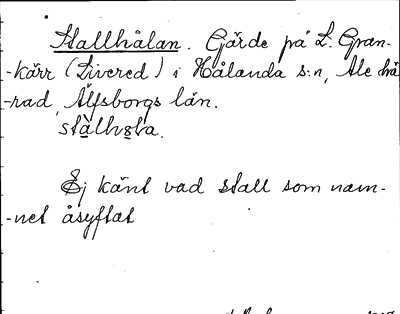 Stallhålan. Gärde på L. Gran-
-kärr (Livered) i Hålanda s:n, Ale hä
-rad, Älfsborgs län.
stàlhɐla.
Ej känt vad stall som nam-
-net åsyftat